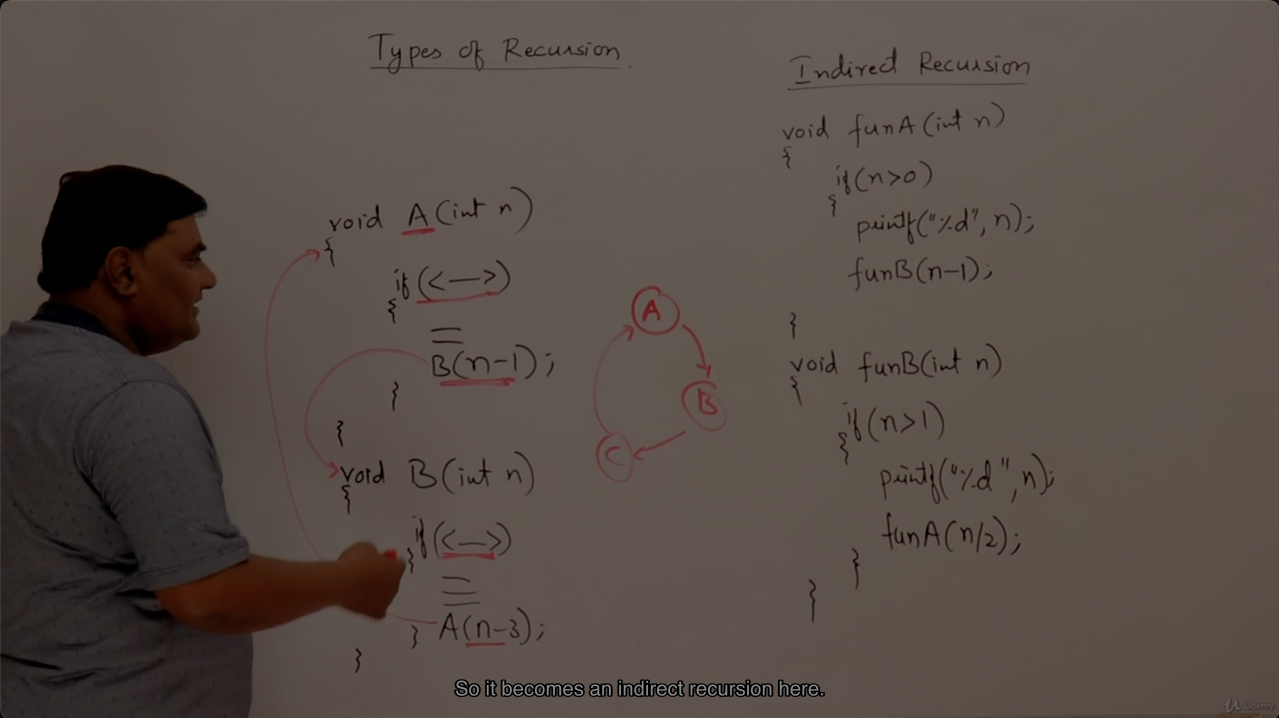 Types of Recursion
void A(int n)
{
if(<—>)
{
B(n-1);
}
}
void B(int n)
{
if(<—>)
{
} A(n-3);
}
A
B
C
Indirect Recursion
void funA(int n)
{
if(n>0)
{
printf("%d", n);
funB(n-1);
}
void funB(int n)
{
if(n>1)
{
printf("%d", n);
funA(n/2);
}
}
So it becomes an indirect recursion here.
Udemy